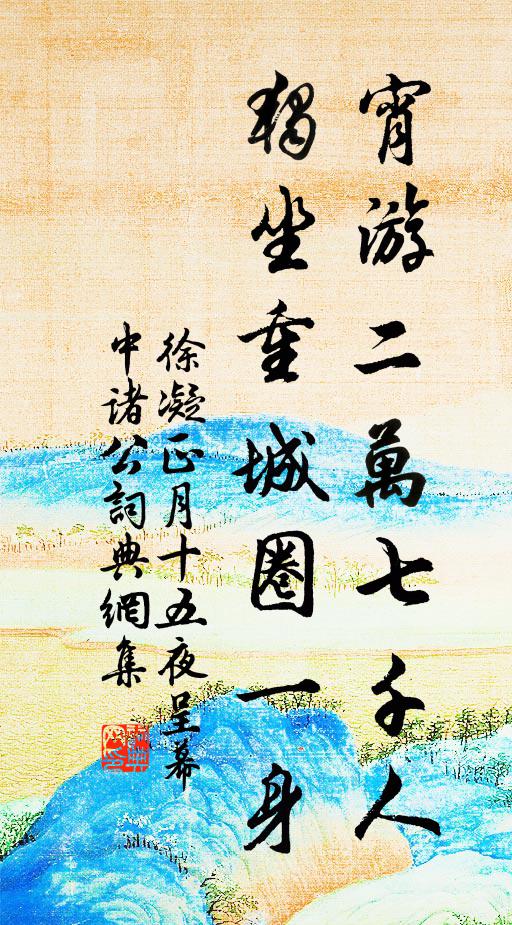 宵游二萬七千人
獨坐重城圈一身
徐凝正月十五夜呈幕
中诸公詞典網集